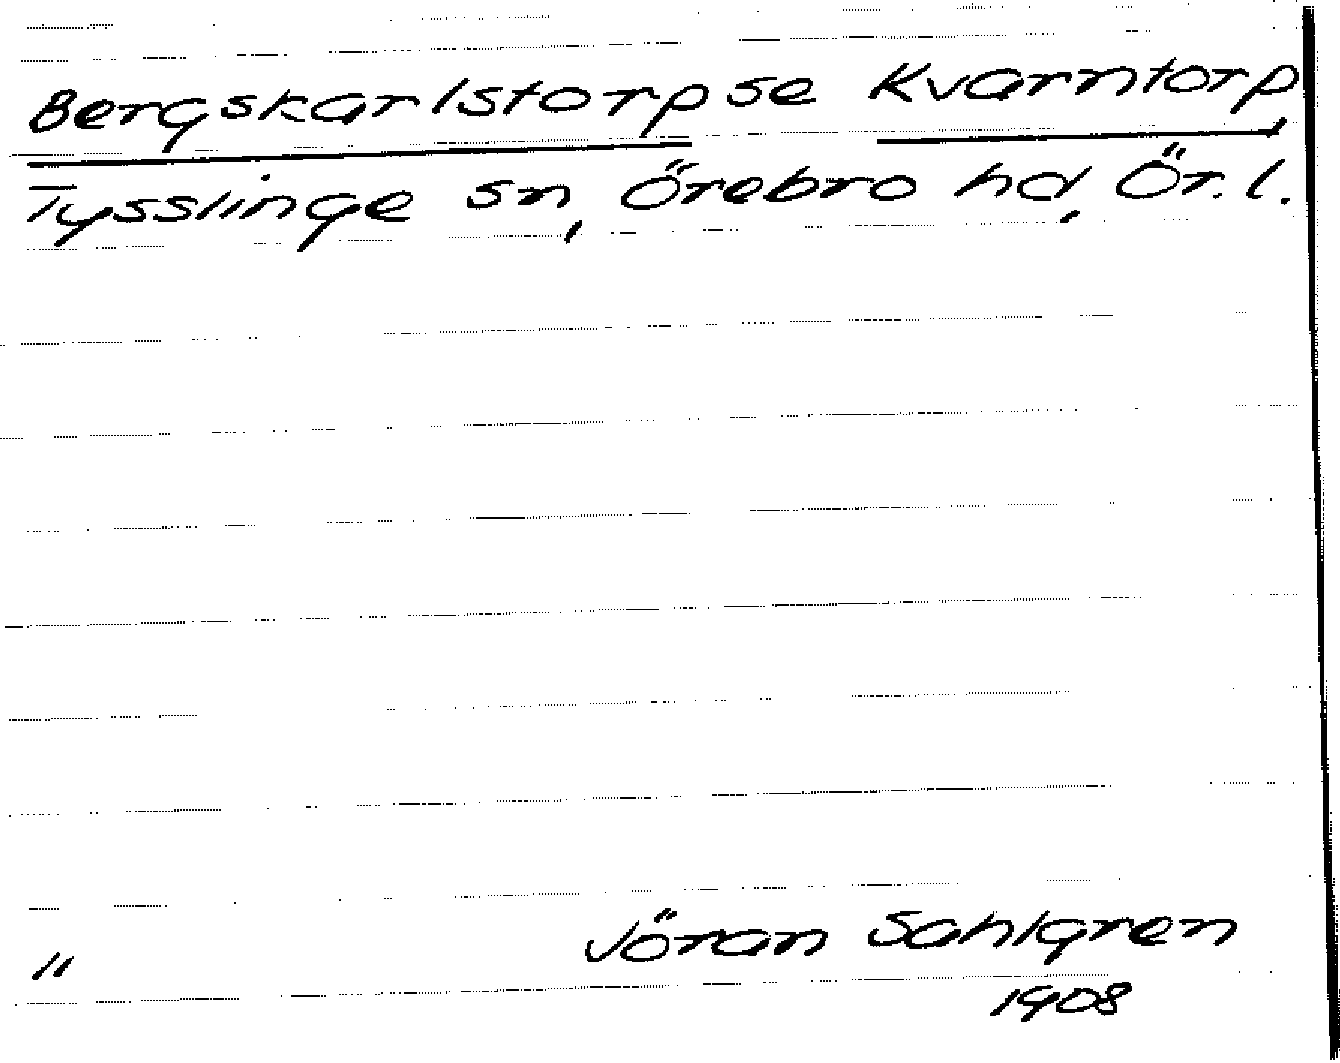 Bergskarlstorp se Kvarntorp,
Tysslinge sn, Örebro hd, Ör. l.
" Jöran Sahlgren
1908